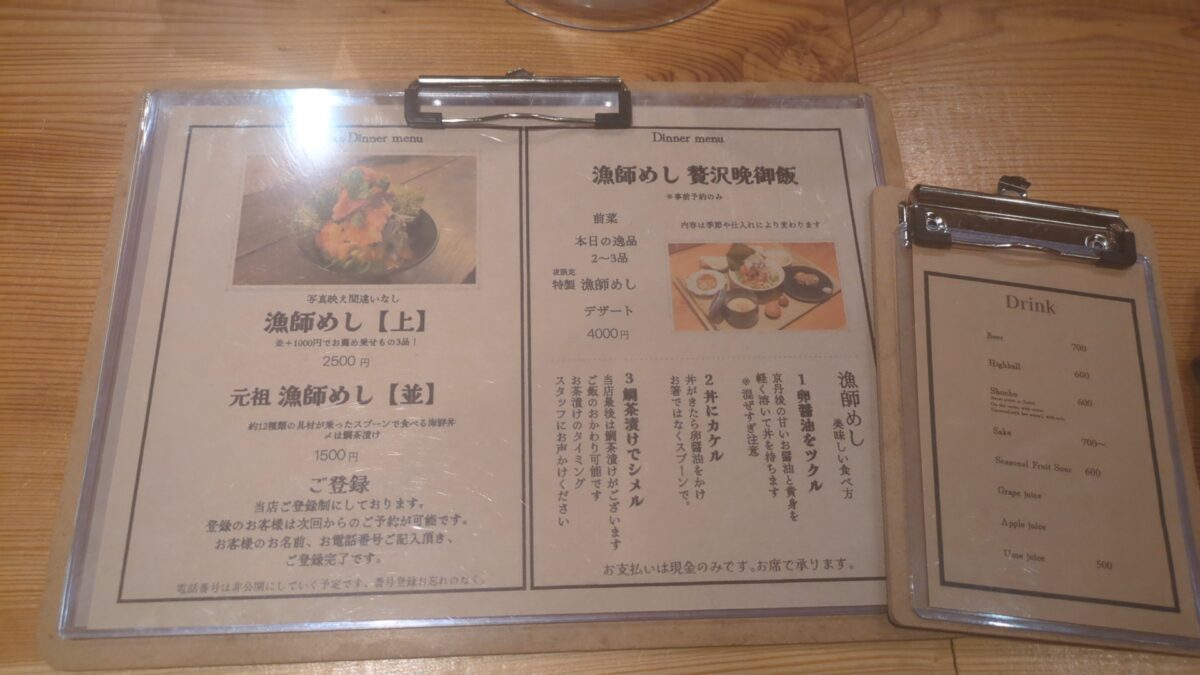 Dinner menu
写真映え間違いなし
漁師めし【上】
並+1000円でお薦め乗せもの3品!
2500 円
元祖 漁師めし【並】
約12種類の具材が乗ったスプーンで食べる海鮮丼
〆は鯛茶漬け
1500 円
ご登録
当店ご登録制にしております。
登録のお客様は次回からのご予約が可能です。
お客様のお名前、お電話番号ご記入頂き、
ご登録完了です。
電話番号は非公開にしていく予定です、番号登録お忘れのなく。
Dinner menu
漁師めし 贅沢晩御飯
※事前予約のみ
前菜
本日の逸品
2〜3品
夜限定
特製 漁師めし
デザート
4000 円
内容は季節や仕入れにより変わります
漁師めし 美味しい食べ方
1 卵醤油をツクル
京丹後の甘いお醤油と黄身を
軽く溶いて丼を待ちます
※混ぜすぎ注意
2 丼にカケル
丼がきたら卵醤油をかけ
お箸ではなくスプーンで。
3 鯛茶漬けでシメル
当店最後は鯛茶漬けがございます
ご飯のおかわり可能です
お茶漬けのタイミング
スタッフにお声かけください
お支払いは現金のみです。お席で承ります。
Drink
Beer 700
Highball 600
Shochu 600
Sake 700〜
Seasonal Fruit Sour 600
Grape juice
Apple juice
Ume juice 500